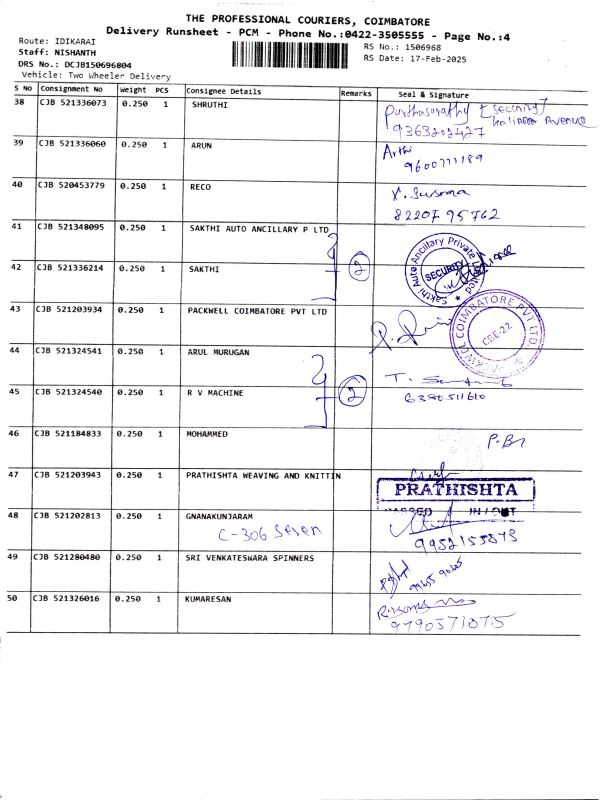 THE PROFESSIONAL COURIERS, COIMBATORE
Delivery Runsheet - PCM - Phone No.:0422-3505555 - Page No.:4
Route: IDIKARAI
RS No.: 1506968
Staff: NISHANTH
RS Date: 17-Feb-2025
DRS No.: DCJB150696804
Vehicle: Two Wheeler Delivery
S No Consignment No Weight PCS Consignee Details Remarks Seal & Signature
38 CJB 521336073 0.250 1 SHRUTHI Parthasarathy [security]
9363202427
39 CJB 521336060 0.250 1 ARUN Arthi
40 CJB 520453779 0.250 1 RECO
82207 95762
41 CJB 521348095 0.250 1 SAKTHI AUTO ANCILLARY P LTD
2
Sakthi Auto Ancillary Private
SECURITY
42 CJB 521336214 0.250 1 SAKTHI
43 CJB 521203934 0.250 1 PACKWELL COIMBATORE PVT LTD
COIMBATORE PVT LTD.
CBE-22
44 CJB 521324541 0.250 1 ARUL MURUGAN
2
45 CJB 521324540 0.250 1 R V MACHINE
6380511610
46 CJB 521184833 0.250 1 MOHAMMED
47 CJB 521203943 0.250 1 PRATHISHTA WEAVING AND KNITTIN
PRATHISHTA
PASSED IN/OUT
48 CJB 521202813 0.250 1 GNANAKUNJARAM
C-306 Seven
9952155873
49 CJB 521280480 0.250 1 SRI VENKATESWARA SPINNERS
50 CJB 521326016 0.250 1 KUMARESAN
9790571075